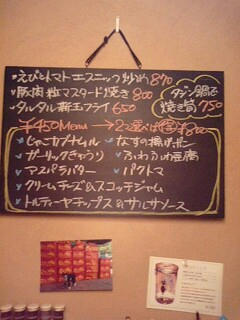 えびとトマトエスニック炒め 870
豚肉粒マスタード焼き 800
タルタル新玉フライ 650
タジン鍋で
焼き筍 750
¥450Menu → 2つ選べば ¥800
じゃこカプレーゼ
なすの揚げポン
ガーリックきゅうり
ふわふわ豆腐
アスパラバター
パクトマ
クリームチーズ&スコッチジャム
トルティーヤチップス&サルサソース